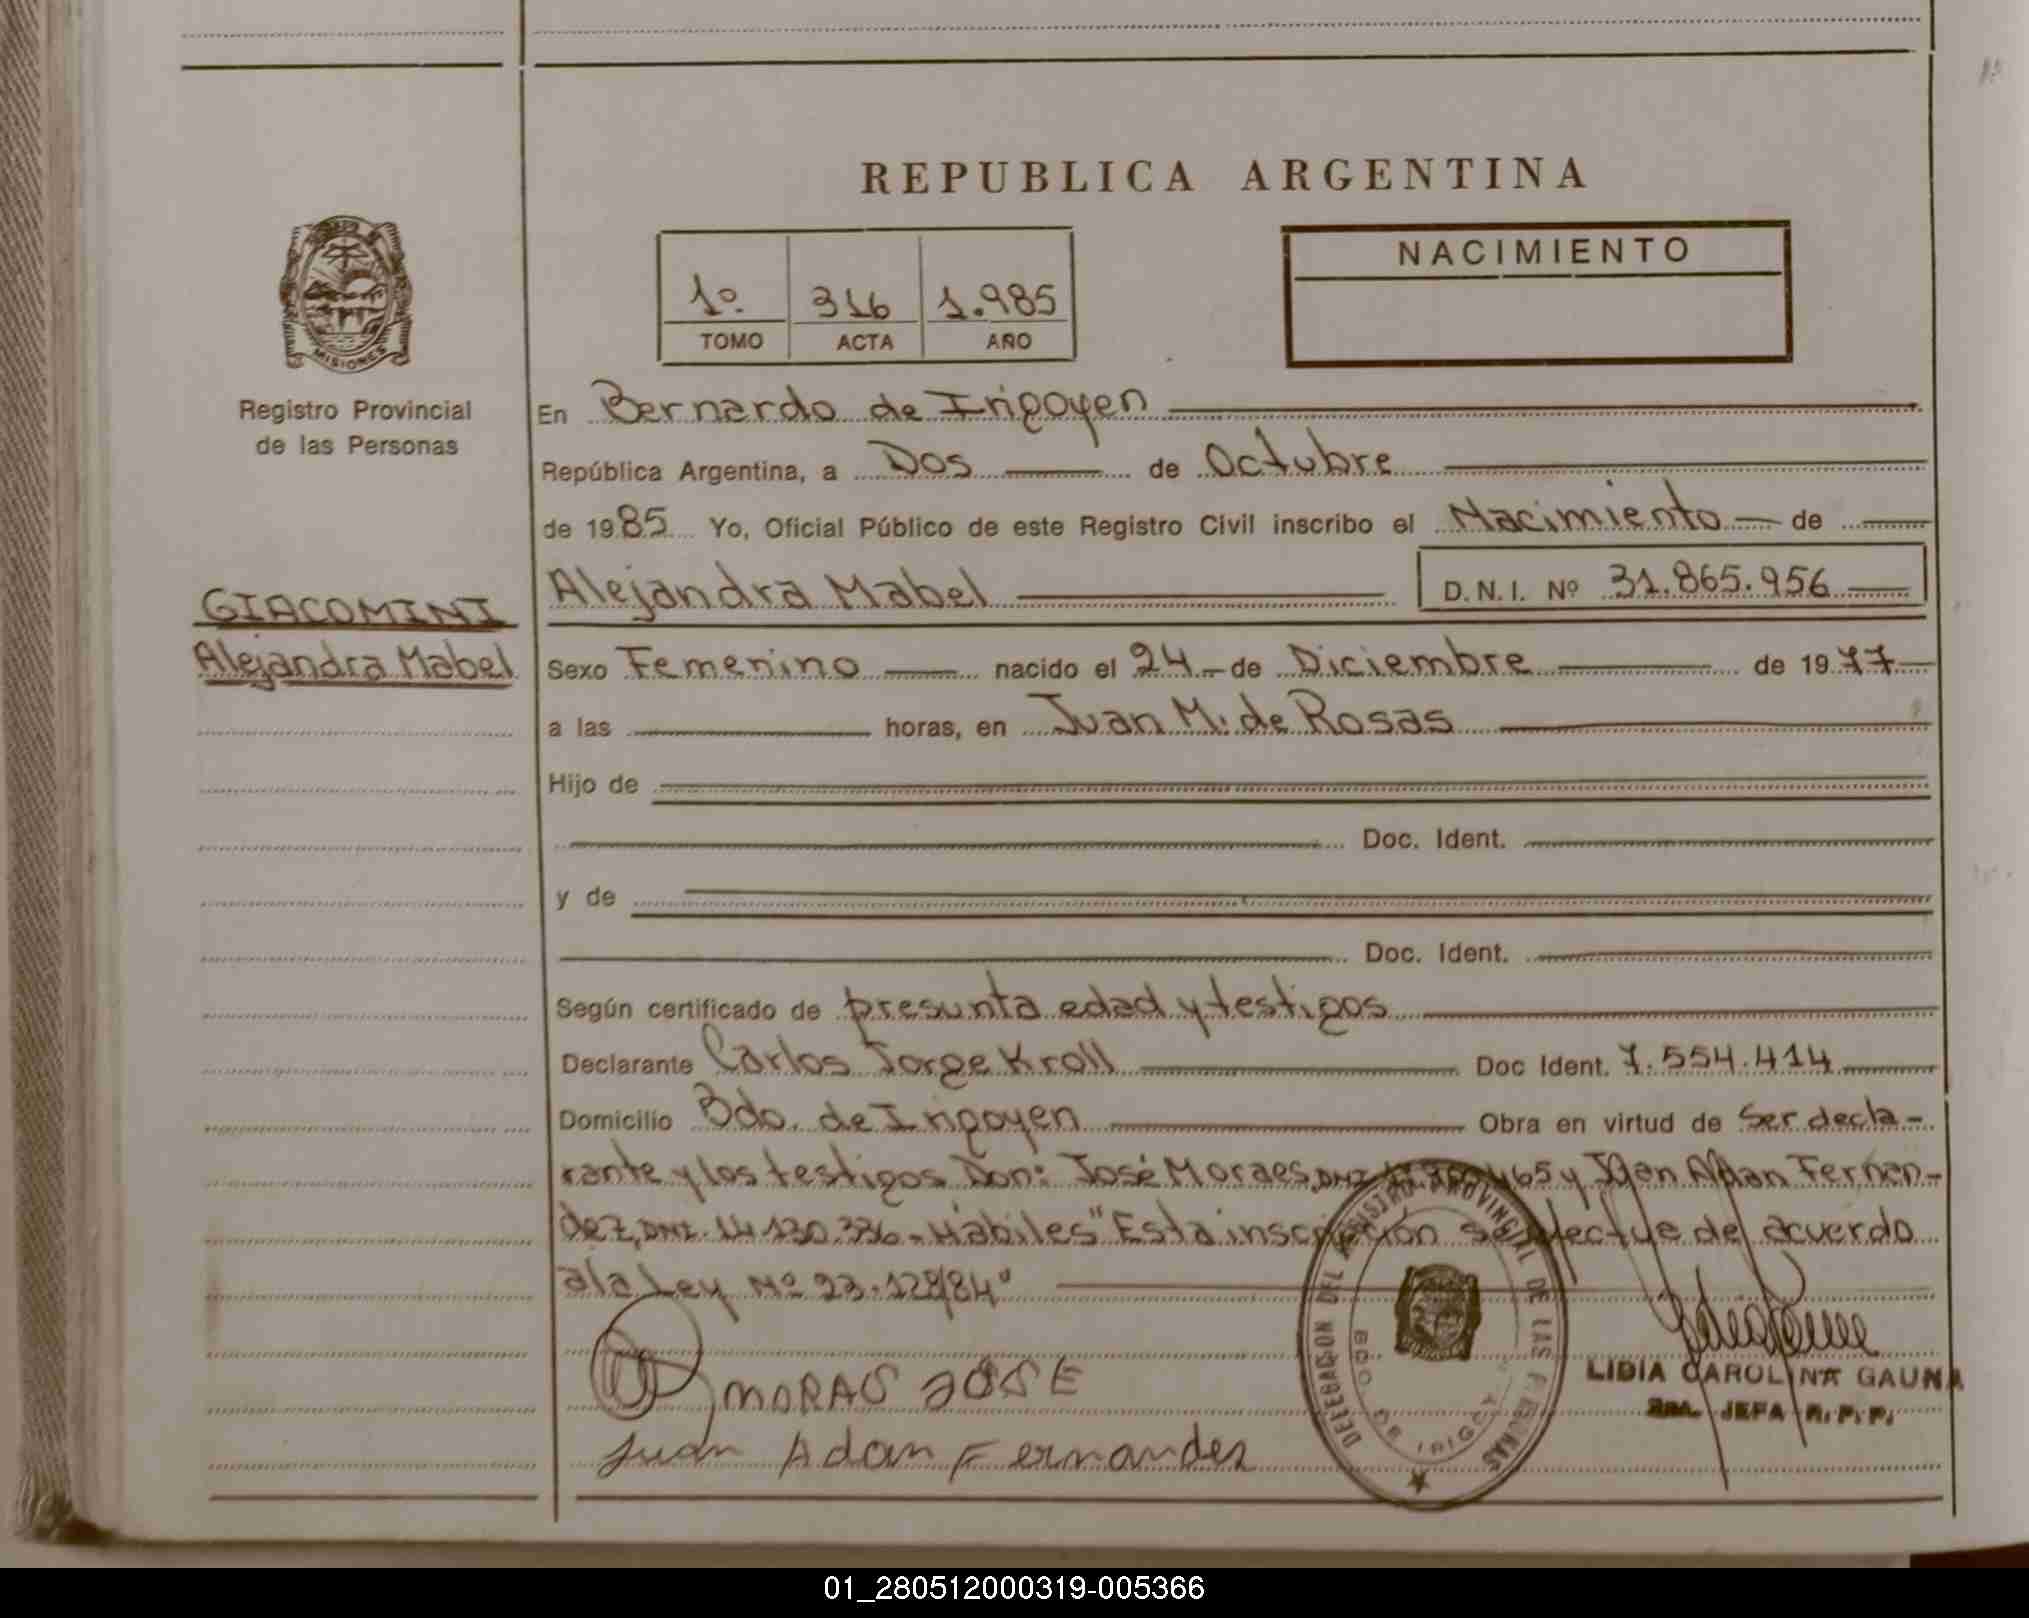 REPUBLICA ARGENTINA
1º 316 1.985
TOMO ACTA AÑO
NACIMIENTO
MISIONES
Registro Provincial
de las Personas
GIACOMINI
Alejandra Mabel
En Bernardo de Irigoyen
República Argentina, a Dos de Octubre
de 1985 Yo, Oficial Público de este Registro Civil inscribo el Nacimiento de
Alejandra Mabel D.N.I. Nº 31.865.956
Sexo Femenino nacido el 24 de Diciembre de 1977
a las horas, en Juan M. de Rosas
Hijo de
Doc. Ident.
y de
Doc. Ident.
Según certificado de presunta edad y testigos
Declarante Carlos Jorge Kroll Doc Ident. 7.554.414
Domicilio Bdo. de Irigoyen Obra en virtud de ser decla-
rante y los testigos Don: José Moraes, DNI y Juan Adan Fernan-
dez, DNI. 14.130.336. Hábiles" Esta inscripción se efectue de acuerdo
a la Ley Nº 23.129/84"
MORAS JOSE
Juan Adan Fernandez
DELEGACION DEL REGISTRO PROVINCIAL DE LAS PERSONAS
BDO. DE IRIGOYEN
LIDIA CAROLINA GAUNA
JEFA R.P.P.
01_280512000319-005366